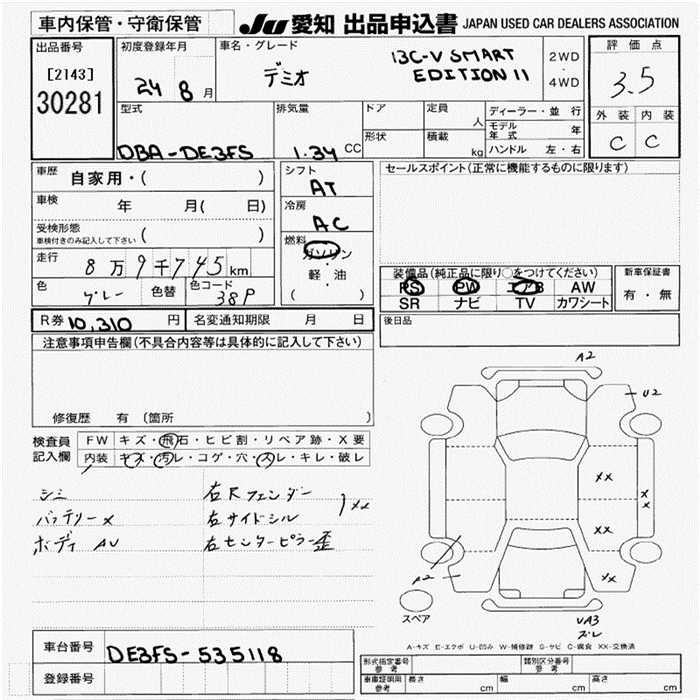 車内保管・守衛保管 JU 愛知 出品申込書 JAPAN USED CAR DEALERS ASSOCIATION
出品番号 [2143] 30281
初度登録年月 24 8 月
車名・グレード デミオ 13C-V SMART EDITION II
2WD・4WD
評価点 3.5
外装 内装
C C
型式 DBA-DE3FS
排気量 1.34 CC
ドア 定員 人
形状 積載 kg
ディーラー・並行
モデル年式 年
ハンドル 左・右
車歴 自家用・( )
車検 年 月( 日)
受検形態 車検付きのみ記入して下さい ( )
走行 8万9千745km
色 グレー 色替 色コード 38P
シフト AT
冷房 AC
燃料 ガソリン・軽油 ( )
セールスポイント(正常に機能するものに限ります)
装備品(純正品に限り○をつけてください)
PS PW エアB AW
SR ナビ TV カワシート
新車保証書 有・無
R券 10,310 円 名変通知期限 月 日
後日品
注意事項申告欄(不具合内容等は具体的に記入して下さい)
修復歴 有 (箇所
検査員記入欄
FW キズ・飛石・ヒビ割・リペア跡・X要
内装 キズ・汚レ・コゲ・穴・スレ・キレ・破レ
シミ 右Rフェンダー
バッテリーX 右サイドシル XX
ボディ AU 右センターピラー歪
A2
U2
XX
XX
XX
XX
A2
スペア
UA3
ズレ
A-キズ E-エクボ U-凹み W-補修跡 S-サビ C-腐食 XX-交換済
車台番号 DE3FS-535118
登録番号
形式指定番号 参考 類別区分番号 参考
車庫証明用 参考 長さ cm 幅 cm 高さ cm